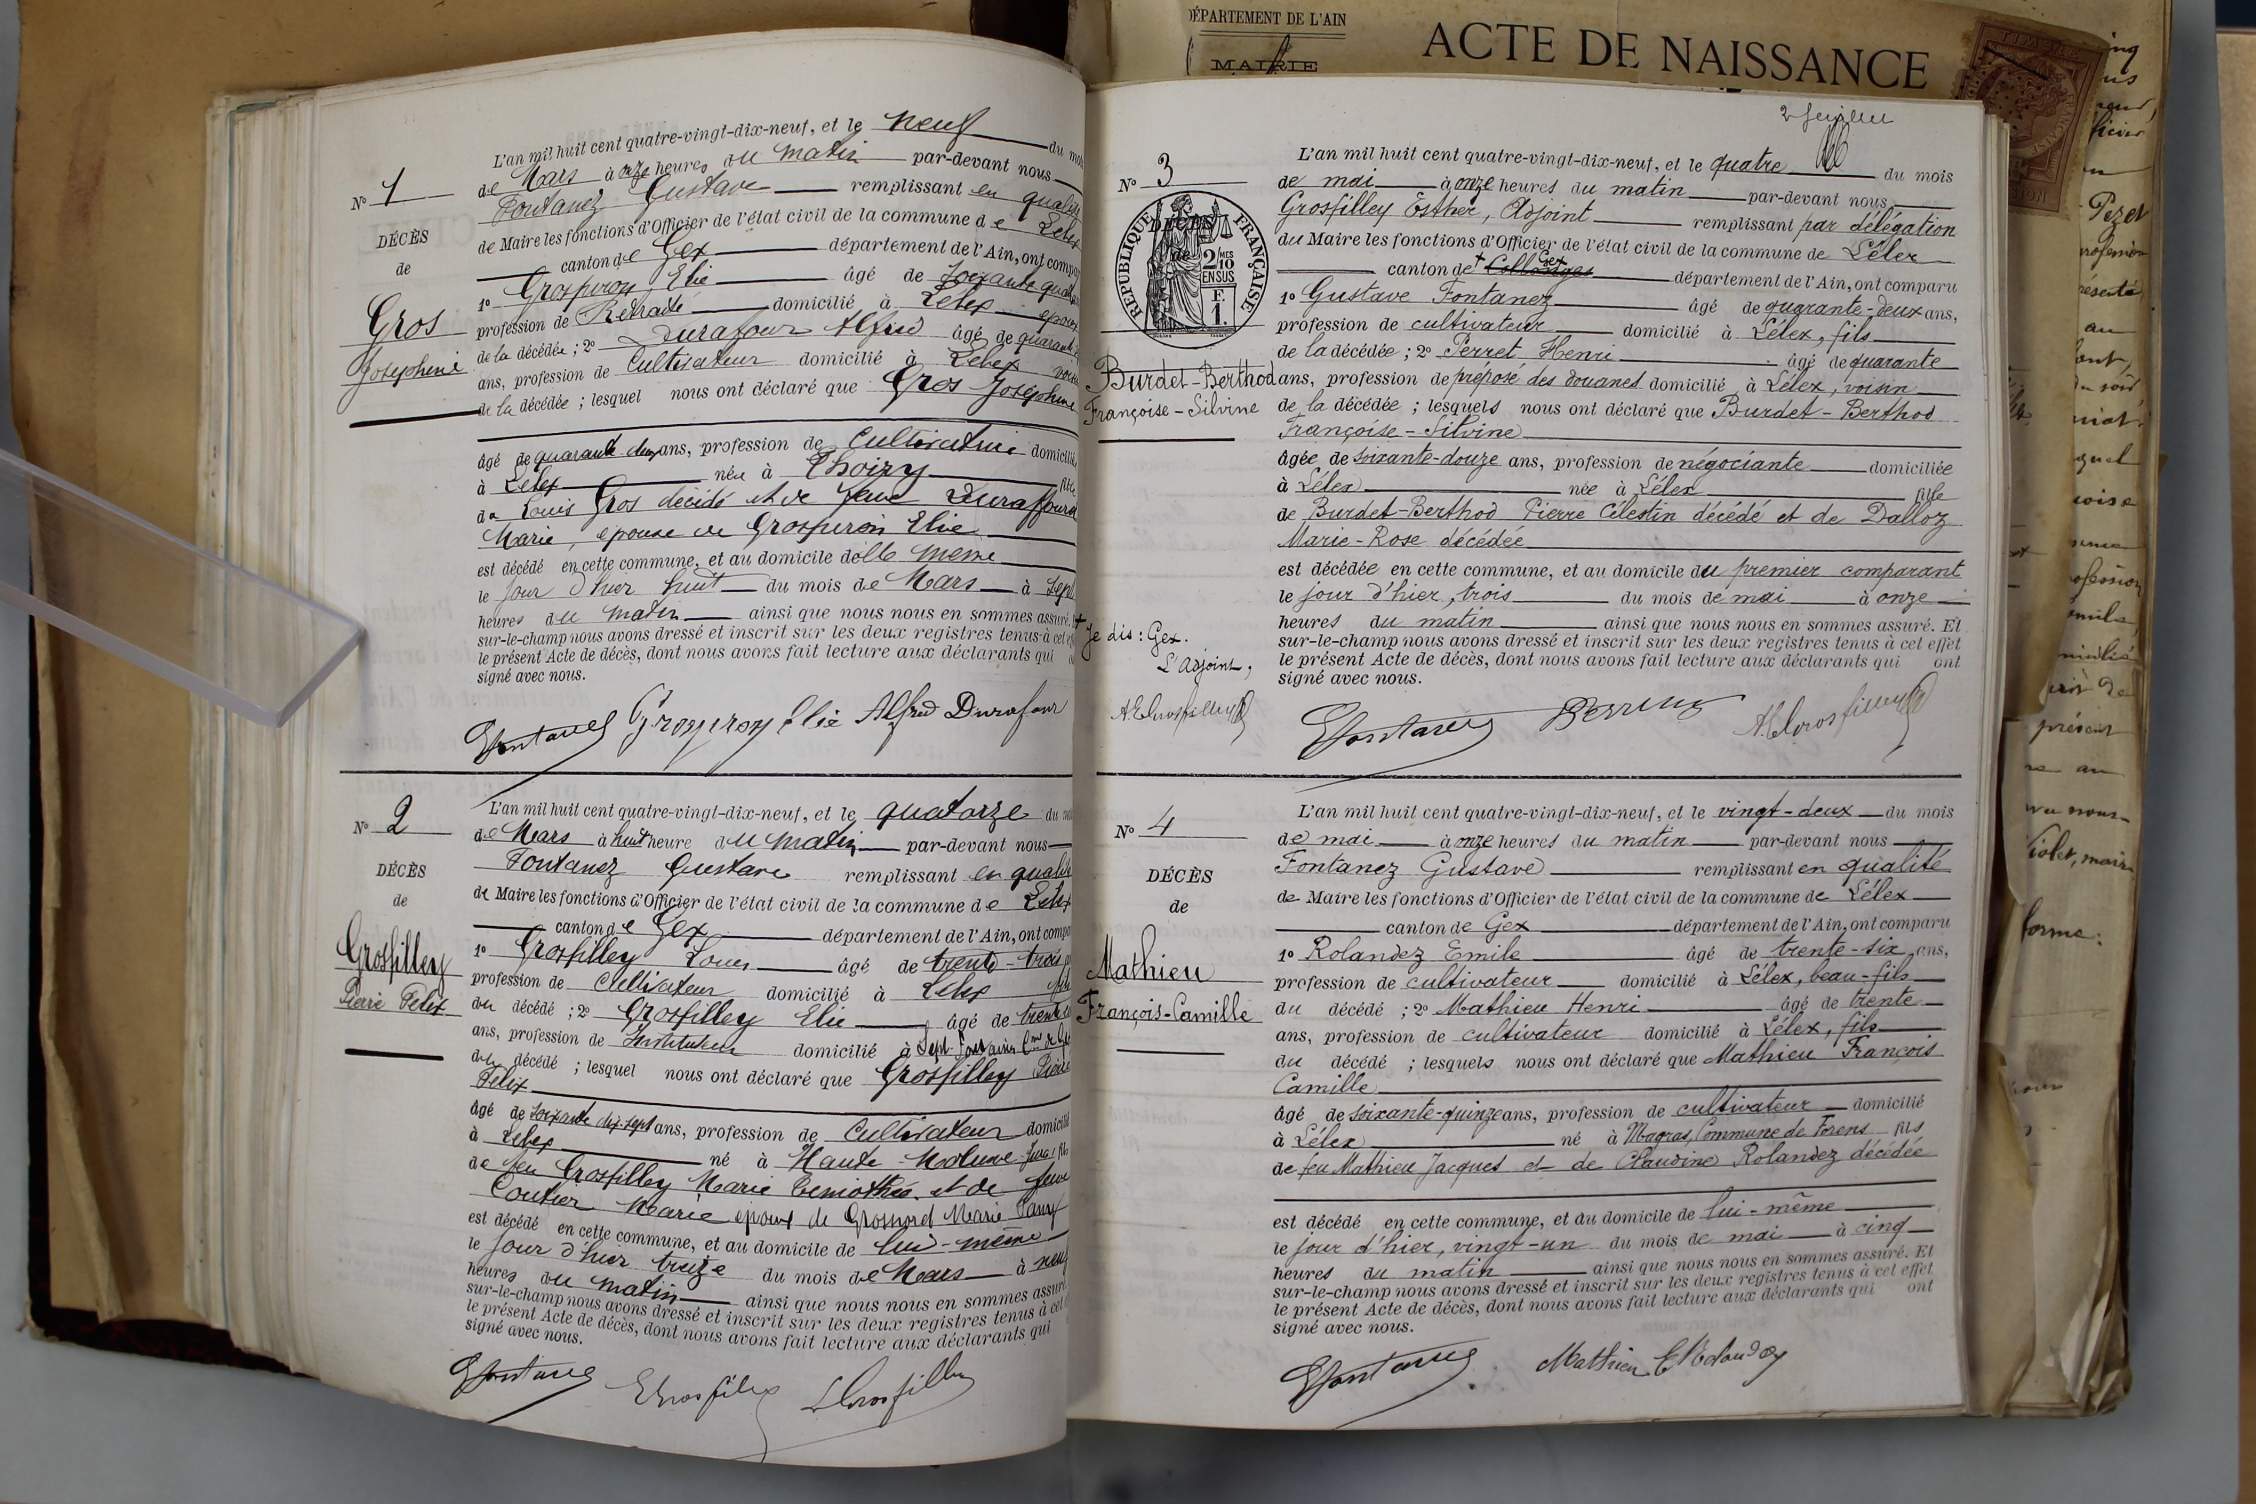 L'an mil huit cent quatre-vingt-dix-neuf, et le neuf du mois
de Mars à onze heures du matin par-devant nous
Fontanez Gustave remplissant en qualité
de Maire les fonctions d'Officier de l'état civil de la commune de Lélex
canton de Gex département de l'Ain, ont compa
1o Grospiron Elie âgé de soixante quat
profession de Retraité domicilié à Lélex époux
de la décédée ; 2o Durafour Alfred âgé de quarante
ans, profession de Cultivateur domicilié à Lélex voisin
de la décédée ; lesquel nous ont déclaré que Gros Joséphine
No 1
DÉCÈS
de
Gros
Joséphine
âgé de quarante deux ans, profession de Cultivatrice domicilié
à Lélex née à Thoiry fille
de Louis Gros décédé et de feue Duraffourd
Marie, épouse de Grospiron Elie
est décédé en cette commune, et au domicile d'elle même
le jour d'hier huit du mois de Mars à sept
heures du matin ainsi que nous nous en sommes assuré.
sur-le-champ nous avons dressé et inscrit sur les deux registres tenus à cet ef
le présent Acte de décès, dont nous avons fait lecture aux déclarants qui
signé avec nous.
GFontanez Grospiron Elie Alfred Durafour
No 2
DÉCÈS
de
Grosfilley
Pierre Félix
L'an mil huit cent quatre-vingt-dix-neuf, et le quatorze du
de Mars à huit heure du matin par-devant nous
Fontanez Gustave remplissant en qualité
de Maire les fonctions d'Officier de l'état civil de la commune de Lélex
canton de Gex département de l'Ain, ont compa
1o Grosfilley Louis âgé de trente-trois
profession de Cultivateur domicilié à Lélex fils
du décédé ; 2o Grosfilley Elie âgé de trente
ans, profession de Instituteur domicilié à Sept-Fontaines
du décédé ; lesquel nous ont déclaré que Grosfilley Pierre
Félix
âgé de soixante dix-sept ans, profession de Cultivateur domicilié
à Lélex né à Haute-Molune Jura fils
de feu Grosfilley Marie Timothée et de feue
Coutier Marie époux de Grossord Marie Fanny
est décédé en cette commune, et au domicile de lui-même
le jour d'hier treize du mois de Mars à neuf
heures du matin ainsi que nous nous en sommes assuré
sur-le-champ nous avons dressé et inscrit sur les deux registres tenus à cet
le présent Acte de décès, dont nous avons fait lecture aux déclarants qui
signé avec nous.
GFontanez EGrosfilley LGrosfilley
DÉPARTEMENT DE L'AIN
MAIRIE
ACTE DE NAISSANCE
2 feuillet
No 3
DÉCÈS
de
RÉPUBLIQUE FRANÇAISE
2/10 MES
EN SUS
F.
1.
Burdet-Berthod
Françoise-Silvine
L'an mil huit cent quatre-vingt-dix-neuf, et le quatre du mois
de mai à onze heures du matin par-devant nous
Grosfilley Esther, Adjoint remplissant par délégation
du Maire les fonctions d'Officier de l'état civil de la commune de Lélex
canton de + Collonges Gex département de l'Ain, ont comparu
1o Gustave Fontanez âgé de quarante-deux ans,
profession de cultivateur domicilié à Lélex, fils
de la décédée ; 2o Perret Henri âgé de quarante
ans, profession de préposé des douanes domicilié à Lélex, voisin
de la décédée ; lesquels nous ont déclaré que Burdet-Berthod
Françoise-Silvine
âgée de soixante-douze ans, profession de négociante domiciliée
à Lélex née à Lélex fille
de Burdet-Berthod Pierre Célestin décédé et de Dalloz
Marie-Rose décédée
est décédée en cette commune, et au domicile du premier comparant
le jour d'hier, trois du mois de mai à onze
heures du matin ainsi que nous nous en sommes assuré. Et
sur-le-champ nous avons dressé et inscrit sur les deux registres tenus à cet effet
le présent Acte de décès, dont nous avons fait lecture aux déclarants qui ont
signé avec nous.
+ Je dis : Gex.
L'adjoint,
A.EGrosfilley
GFontanez Perret A.EGrosfilley
No 4
DÉCÈS
de
Mathieu
François-Camille
L'an mil huit cent quatre-vingt-dix-neuf, et le vingt-deux du mois
de mai à onze heures du matin par-devant nous
Fontanez Gustave remplissant en qualité
de Maire les fonctions d'Officier de l'état civil de la commune de Lélex
canton de Gex département de l'Ain, ont comparu
1o Rolandez Emile âgé de trente-six ans,
profession de cultivateur domicilié à Lélex, beau-fils
du décédé ; 2o Mathieu Henri âgé de trente
ans, profession de cultivateur domicilié à Lélex, fils
du décédé ; lesquels nous ont déclaré que Mathieu François
Camille
âgé de soixante-quinze ans, profession de cultivateur domicilié
à Lélex né à Magras, Commune de Forens fils
de feu Mathieu Jacques et de Claudine Rolandez décédée
est décédé en cette commune, et au domicile de lui-même
le jour d'hier, vingt-un du mois de mai à cinq
heures du matin ainsi que nous nous en sommes assuré. Et
sur-le-champ nous avons dressé et inscrit sur les deux registres tenus à cet effet
le présent Acte de décès, dont nous avons fait lecture aux déclarants qui ont
signé avec nous.
GFontanez Mathieu E Rolandez
Pezet
profession
présent
Violet, maire
forme :